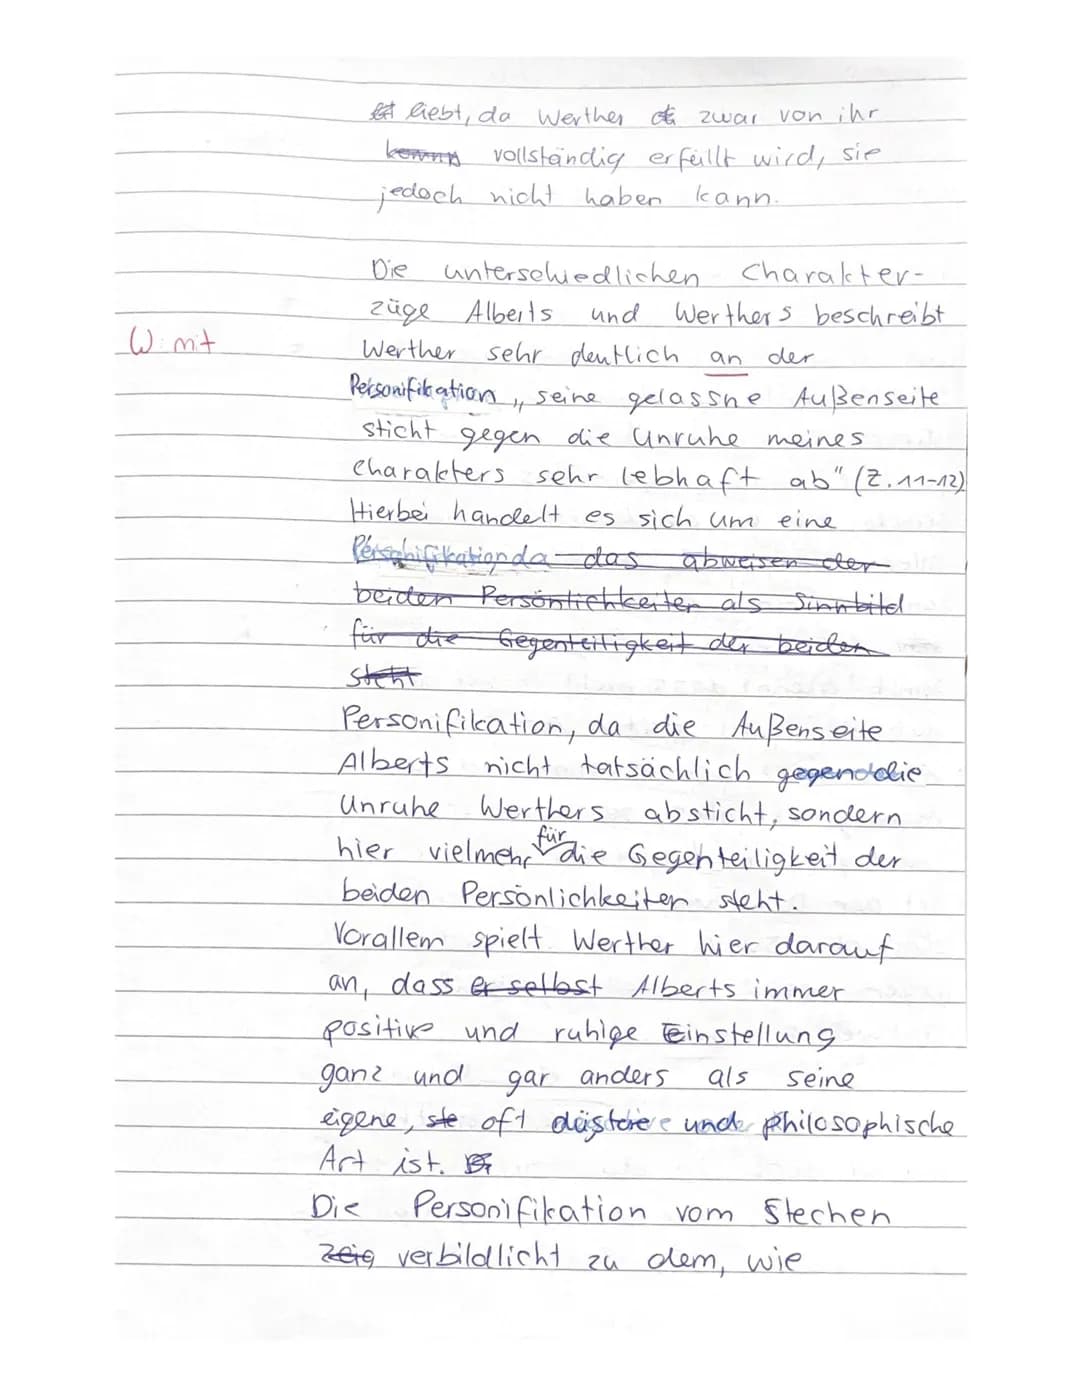 liebt, da Werther zwar von ihr
vollständig erfüllt wird, sie
jedoch nicht haben kann.
Die unterschiedlichen Charakter-
züge Alberts und Werthers beschreibt
W: mit
Werther sehr deutlich an der
Personifikation „seine gelassne Außenseite
sticht gegen die Unruhe meines
Charakters sehr lebhaft ab" (Z. 11-12)
Hierbei handelt es sich um eine
Personifikation da das abweisen der
beiden Persönlichkeiten als Sinnbild
für die Gegenteiligkeit der beiden
steht
Personifikation, da die Außenseite
Alberts nicht tatsächlich gegen die
Unruhe Werthers absticht, sondern
hier vielmehr für die Gegenteiligkeit der
beiden Persönlichkeiten steht.
Vorallem spielt Werther hier darauf
an, dass er selbst Alberts immer
positive und ruhige Einstellung
ganz und gar anders als seine
eigene, ste oft düstere und philosophische
Art ist.
Die Personifikation vom Stechen
zeig verbildlicht zu dem, wie